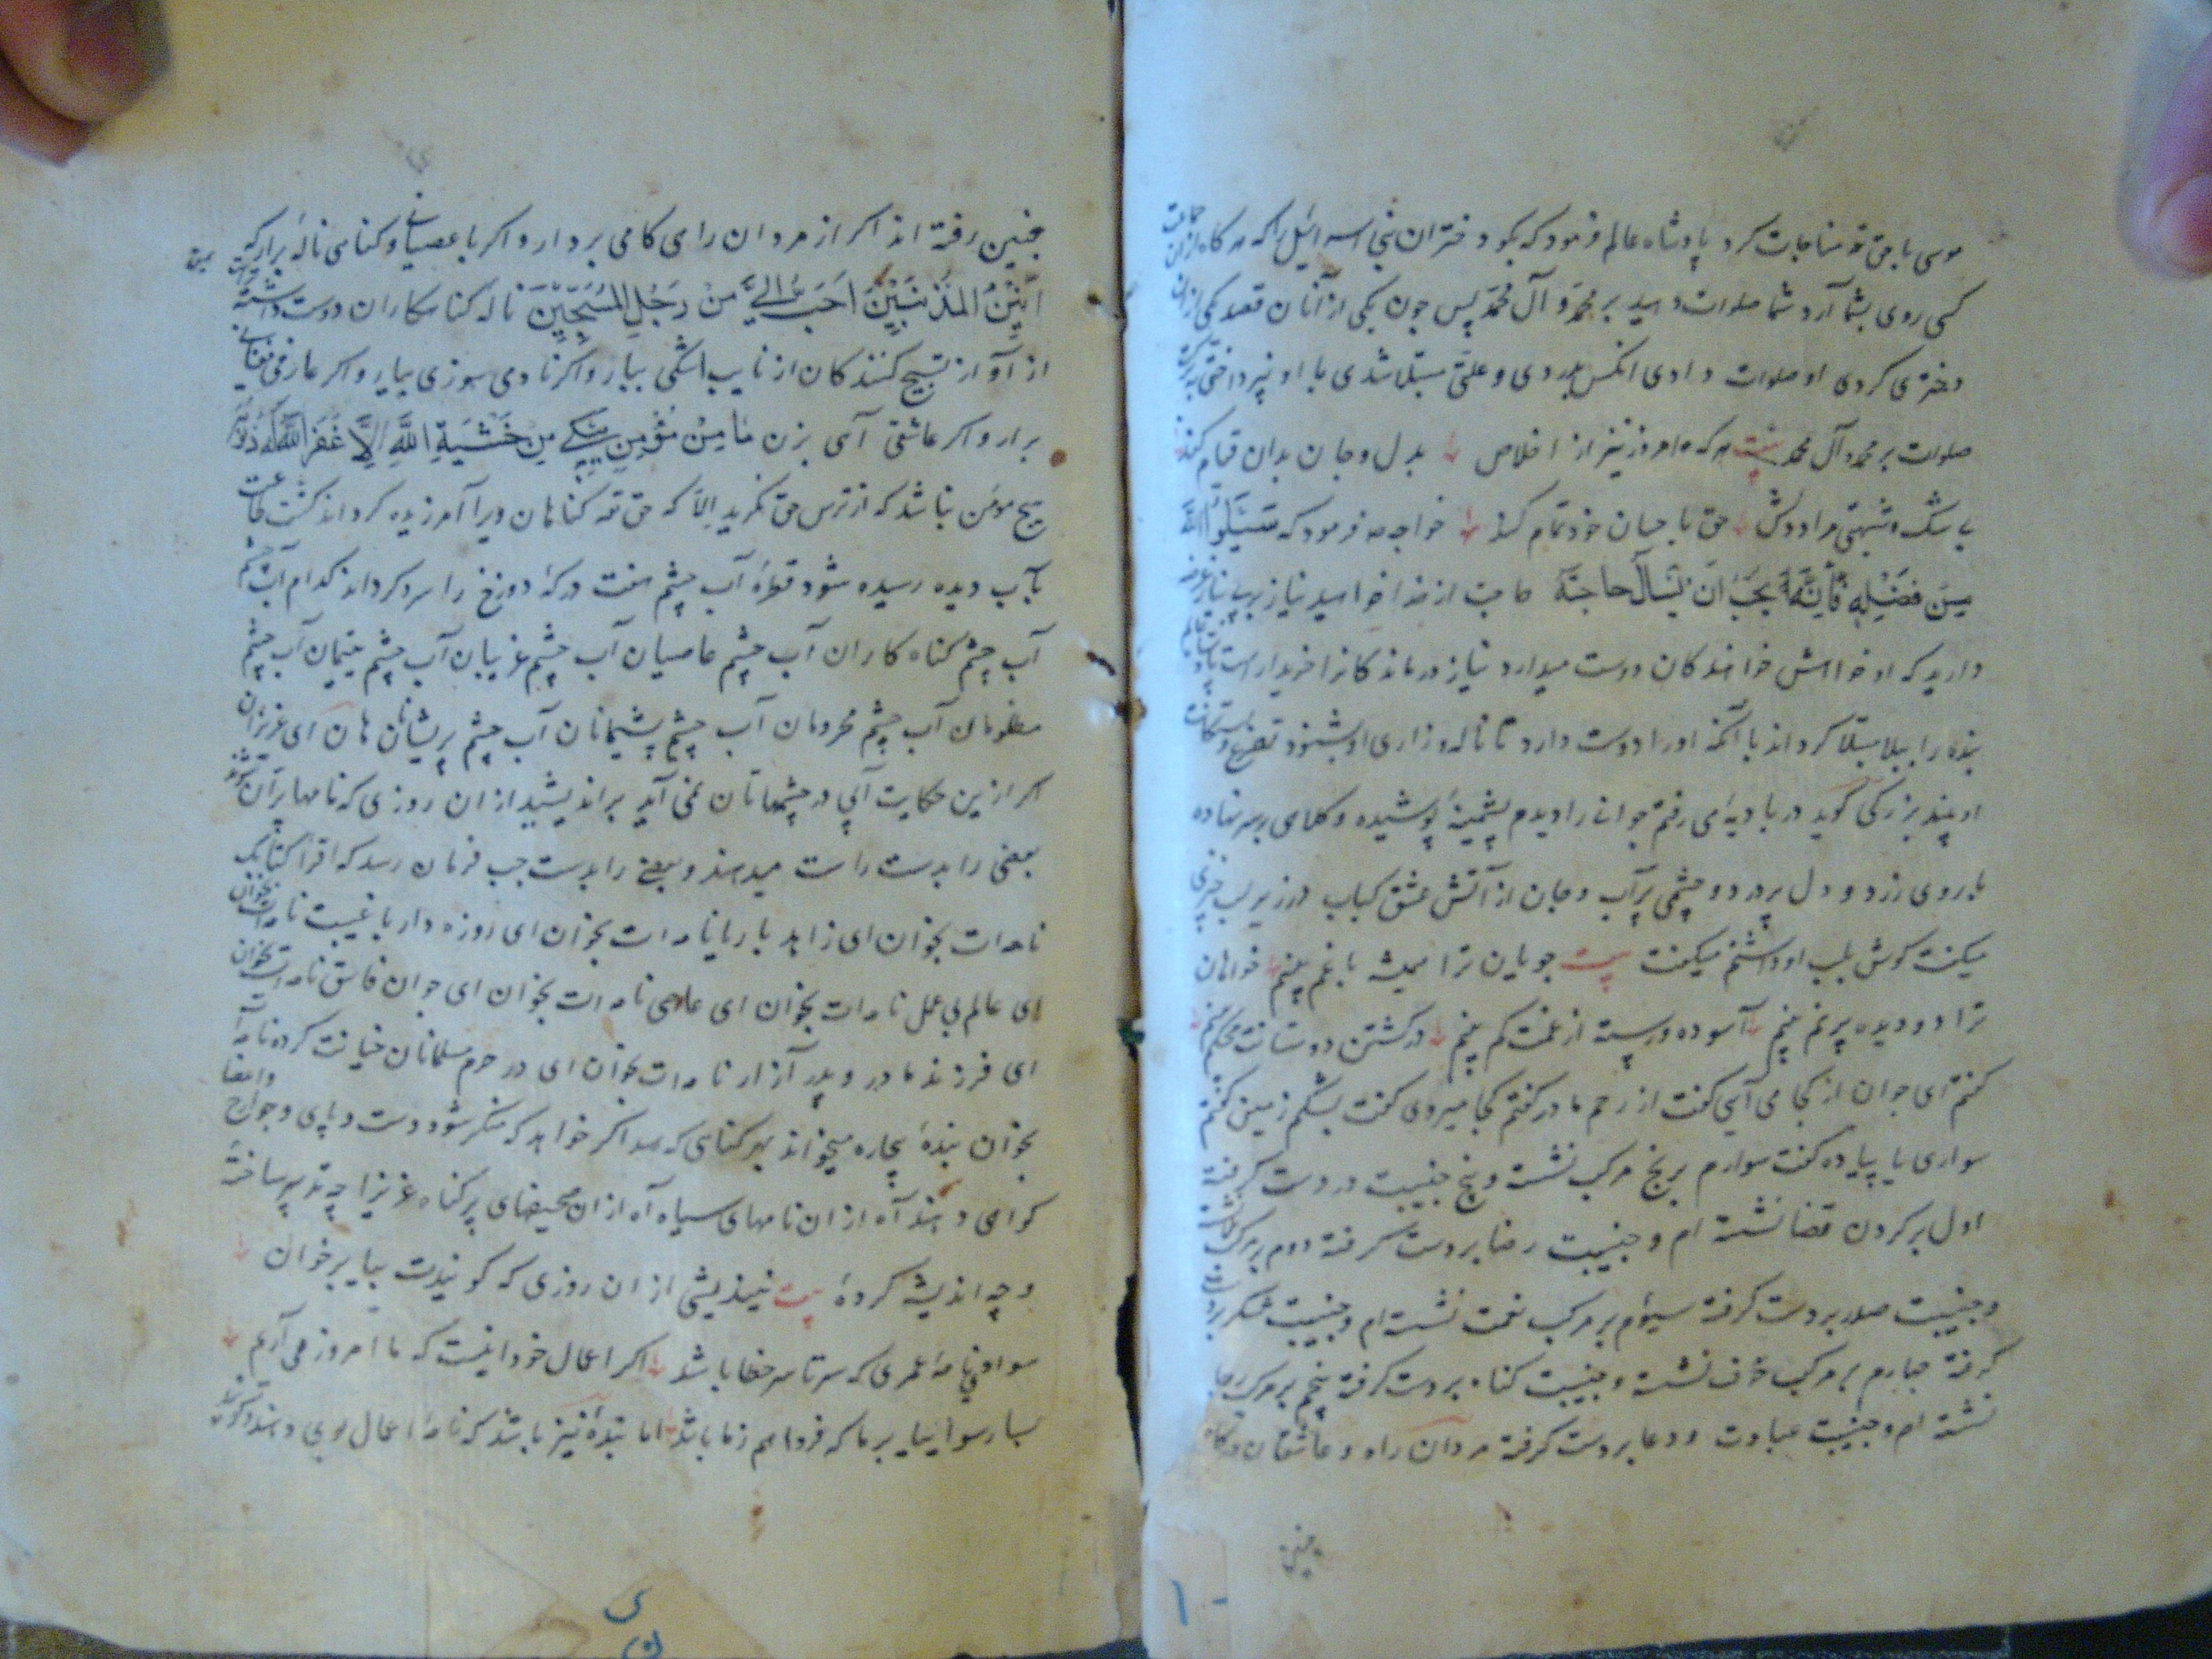 موسی با حق تعالی مناجات کرد پادشاه عالم فرمود که بگو دختران بنی اسرائیل را که هرگاه از ان جماعت
کسی روی بشما آرد شما صلوات دهید بر محمد و آل محمد پس چون یکی از آنان قصد یکی ازان
دختری کردی او صلوات دادی انکس بدردی و علتی مبتلا شدی با او نپرداختی
صلوات بر محمد و آل محمد بیت هر که امروز نیز از اخلاص بدل و جان بدان قیام کند
بی شک و شبهتی مرادش حق باحسان خود تمام کند خواجه فرمود که سَیَلُوا اللّٰه
مِنْ فَضْلِهِ فَاِنَّهُ یُحِبُّ اَنْ یُسْأَلَ حاجتها حاجت از خدا خواهید نیاز بر بی نیاز عرضه
دارید که او خواهش خواهندکان دوست میدارد نیاز درماندکانرا خریدار است
بنده را ببلا مبتلا کرداند با آنکه او را دوست دارد تا ناله و زاری او بشنود تضرع
او بیند بزرکی کوید در بادیه می رفتم جوانی را دیدم پشمینه پوشیده و کلاهی بر سر نهاده
با روی زرد و دل پر درد و چشمی پر آب و جان از آتش عشق کباب در زیر لب چیزی
میکفت کوش بلب او داشتم میکفت بیت جویان ترا همیشه با غم بینم خواهان
ترا دو دیده پر نم بینم آسوده و رسته از غمت کم بینم در کشتن دوستانت محکم بینم
کفتم ای جوان از کجا می آیی کفت از رحم مادر کفتم کجا میروی کفت بشکم زمین کفتم
سواری یا پیاده کفت سوارم بر پنج مرکب نشسته و پنج جنیبت در دست کرفته
اول بر کردن قضا نشسته ام و جنیبت رضا بر دست کرفته دوم بر مرکب
و جنیبت صبر بر دست کرفته سیوم بر مرکب نعمت نشسته ام و جنیبت شکر بر دست
کرفته چهارم بر مرکب خوف نشسته و جنیبت کناه بر دست کرفته پنجم بر مرکب رجا
نشسته ام و جنیبت عبادت و دعا بر دست کرفته مردان راه و عاشقان درکاه
چنین
چنین رفته اند اکر از مردان راهی کامی بردار و اکر با عصیانی و کناهی ناله برار که
اَنِیْنُ الْمُذْنِبِیْنَ اَحَبُّ اِلَیَّ مِنْ زَجَلِ الْمُسَبِّحِیْنَ ناله کناهکاران دوست داشته
از آواز تسبیح کنندکان از تایب اشکی ببار و اکر نادمی سوزی بیار و اکر عارفی فغانی
برار و اکر عاشقی آهی بزن مَا مِنْ مُؤْمِنٍ یَبْکِی مِنْ خَشْیَةِ اللّٰهِ اِلَّا غَفَرَ اللّٰهُ لَهُ ذُنُوبَهُ
هیچ مومن نباشد که از ترس حق نکرید الا که حق تعالی کناهان ویرا آمرزیده کرداند کشت طاعت
بآب دیده رسیده شود قطرۀ آب چشم هفت درکۀ دوزخ را سرد کرداند کدام آب چشم
آب چشم کناه کاران آب چشم عاصیان آب چشم غریبان آب چشم یتیمان آب چشم
مظلومان آب چشم محرومان آب چشم پشیمانان آب چشم پریشانان هان ای عزیزان
اکر ازین حکایت آبی در چشمهاتان نمی آید براندیشید از ان روزی که نامها پران شود
بعضی را بدست راست میدهند و بعضی را بدست چپ فرمان رسد که اقرا کتابک
نامه ات بخوان ای زاهد با ریا نامه ات بخوان ای روزه دار با غیبت نامه ات بخوان
ای عالم بی عمل نامه ات بخوان ای عاصی نامه ات بخوان ای جوان فاسق نامه ات بخوان
ای فرزند مادر و پدر آزار نامه ات بخوان ای در حرم مسلمانان خیانت کرده نامه
بخوان بندۀ بیچاره میخواند بهر کناهی که رسد اکر خواهد که منکر شود دست و پای و جوارح و اعضا
کواهی دهند آه از ان نامهای سیاه آه از ان صحیفهای پر کناه عزیزا چه تدبیر ساختۀ
و چه اندیشه کردۀ بیت نیندیشی از ان روزی که کویندت بیا برخوان
سواد نامۀ عمری که سر تا سر خطا باشد اکر اعمال خود اینست که ما امروز می آریم
بسا رسوایی بر ما که فردا هم ز ما باشد اما بندۀ نیز باشد که نامۀ اعمال بوی دهند
۱۰